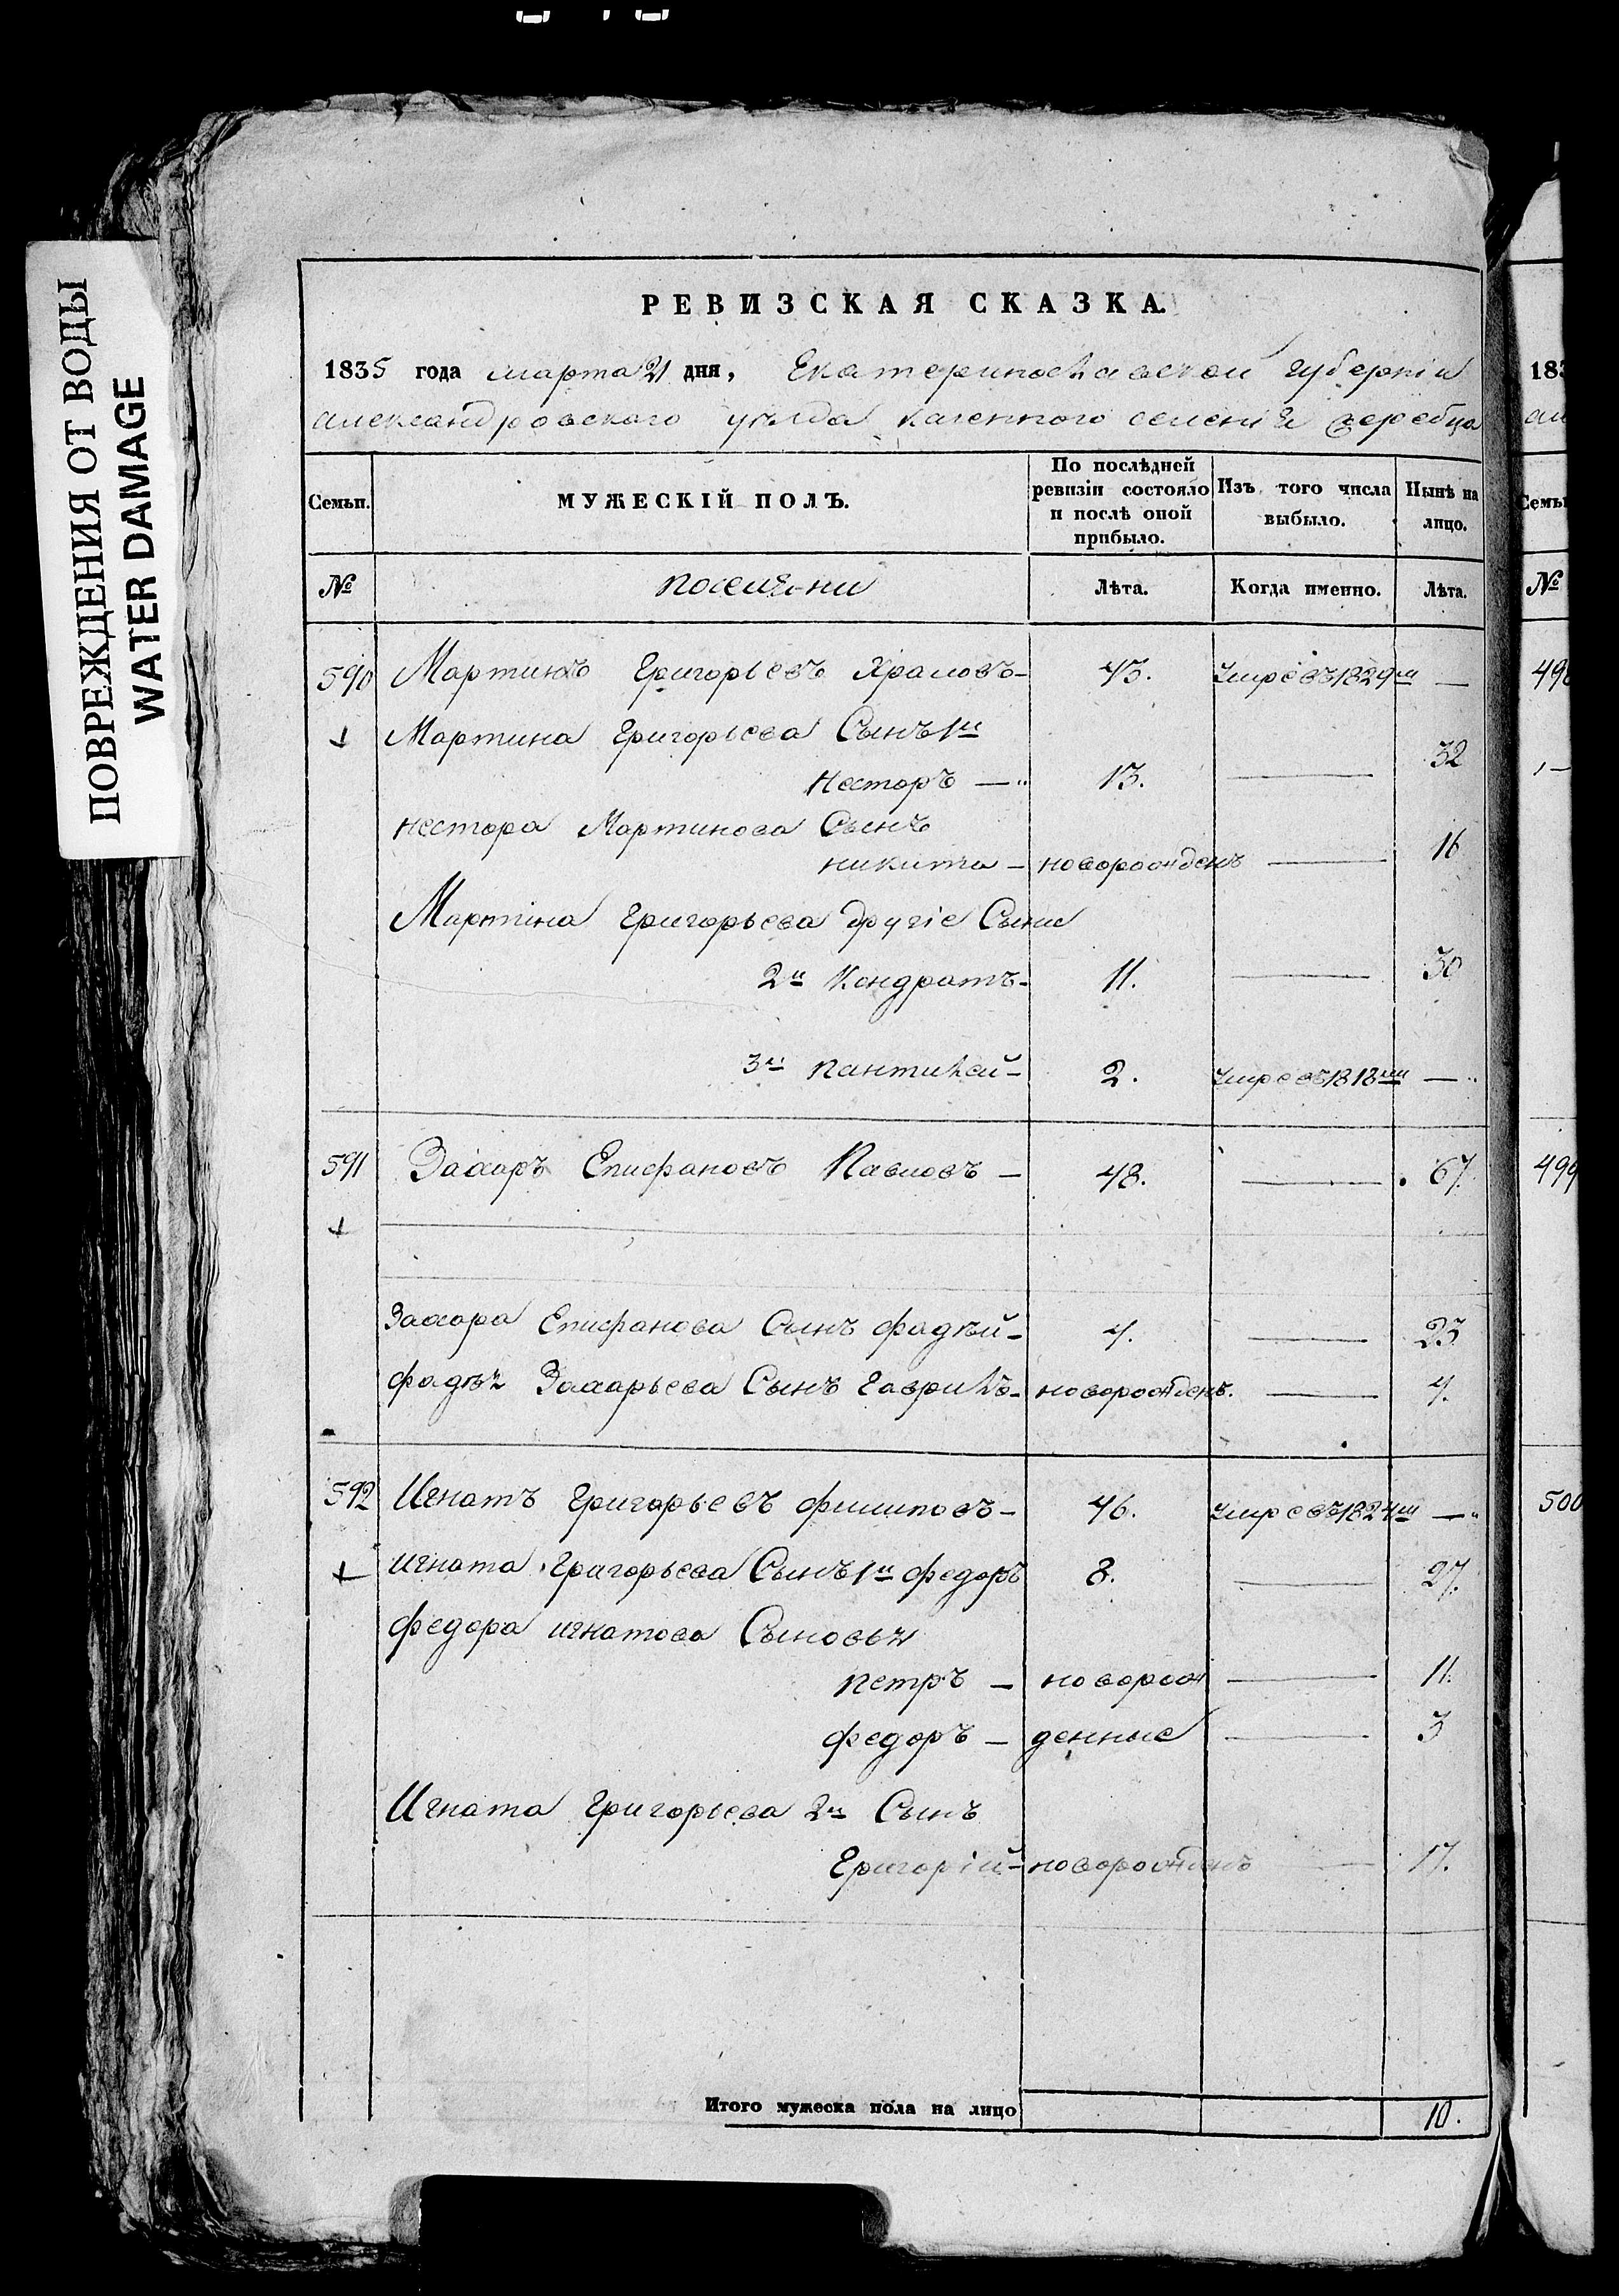 ПОВРЕЖДЕНИЯ ОТ ВОДЫ
WATER DAMAGE
РЕВИЗСКАЯ СКАЗКА.
1835 года марта 21 дня, Екатеринославской губерніи
александровского уѣзда казенного селенія жеребца
Семьи. МУЖЕСКІЙ ПОЛЪ. По послѣдней ревизіи состояло и послѣ оной прибыло. Изъ того числа выбыло. Нынѣ на лицо.
№ поселяни Лѣта. Когда именно. Лѣта.
590 Мартинъ Григорьевъ Храмовъ- 43. умре въ 1829м —
Мартина Григорьева Сынъ 1й
Несторъ — 13. — 32
Нестора Мартинова Сынъ
никита - новорожденъ — 16
Мартіна Григорьева другіе Сыни
2й Кондратъ- 11. — 30
3й Пантилей- 2. умре въ 1818мъ —
591 Захаръ Епифановъ Павловъ — 48. — 67.
Захара Епифанова Сынъ фадѣй- 4. — 23
фадѣя Захарьева Сынъ Гаврилъ- новорожденъ. — 4.
592 Игнатъ Григорьевъ филиповъ- 46. умре въ 1824м —
игната Григорьева Сынъ 1й федоръ 8. — 27.
федора игнатова Сыновья
петръ — новорож — 11.
федоръ — денные — 3
Игната Григорьева 2й Сынъ
Григорій- новорожденъ — 17.
Итого мужеска пола на лицо 10.
183
Семьи
№
498
499
500